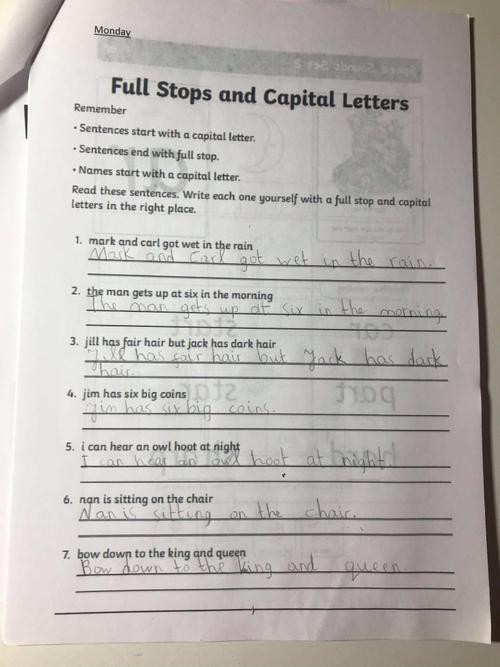 Monday
Full Stops and Capital Letters
Remember
• Sentences start with a capital letter.
• Sentences end with full stop.
• Names start with a capital letter.
Read these sentences. Write each one yourself with a full stop and capital
letters in the right place.
1. mark and carl got wet in the rain
Mark and Carl got wet in the rain.
2. the man gets up at six in the morning
The man gets up at six in the morning
3. jill has fair hair but jack has dark hair
Jill has fair hair but Jack has dark
hair.
4. jim has six big coins
Jim has six big coins.
5. i can hear an owl hoot at night
I can hear an owl hoot at night.
6. nan is sitting on the chair
Nan is sitting on the chair.
7. bow down to the king and queen
Bow down to the king and queen.